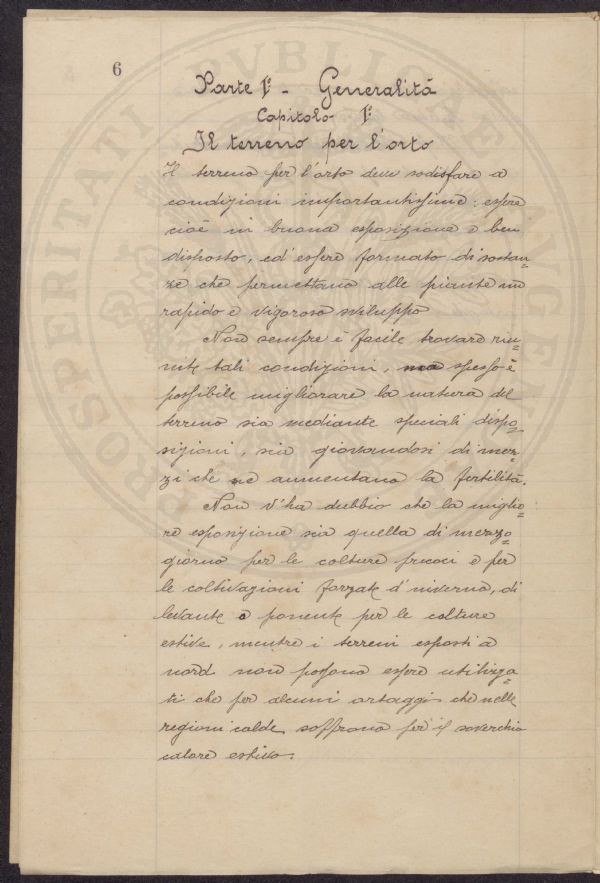 6
PROSPERITATI PVBLICAE AVGENDAE
Parte 1ª - Generalità
Capitolo 1º
Il terreno per l'orto
Il terreno per l'orto deve sodisfare a
condizioni importantissime: essere
cioè in buona esposizione e ben
disposto, ed essere formato di sostan=
ze che permettano alle piante un
rapido e vigoroso sviluppo
Non sempre è facile trovare riu=
nite tali condizioni, ma spesso è
possibile migliorare la natura del
terreno sia mediante speciali dispo=
sizioni, sia giovandosi di mez=
zi che ne aumentano la fertilità.
Non v'ha dubbio che la miglio=
re esposizione sia quella di mezzo=
giorno per le colture precoci e per
le coltivazioni forzate d'inverno, di
levante o ponente per le colture
estive, mentre i terreni esposti a
nord non possono essere utilizza=
ti che per alcuni ortaggi che nelle
regioni calde soffrono per il soverchio
calore estivo.